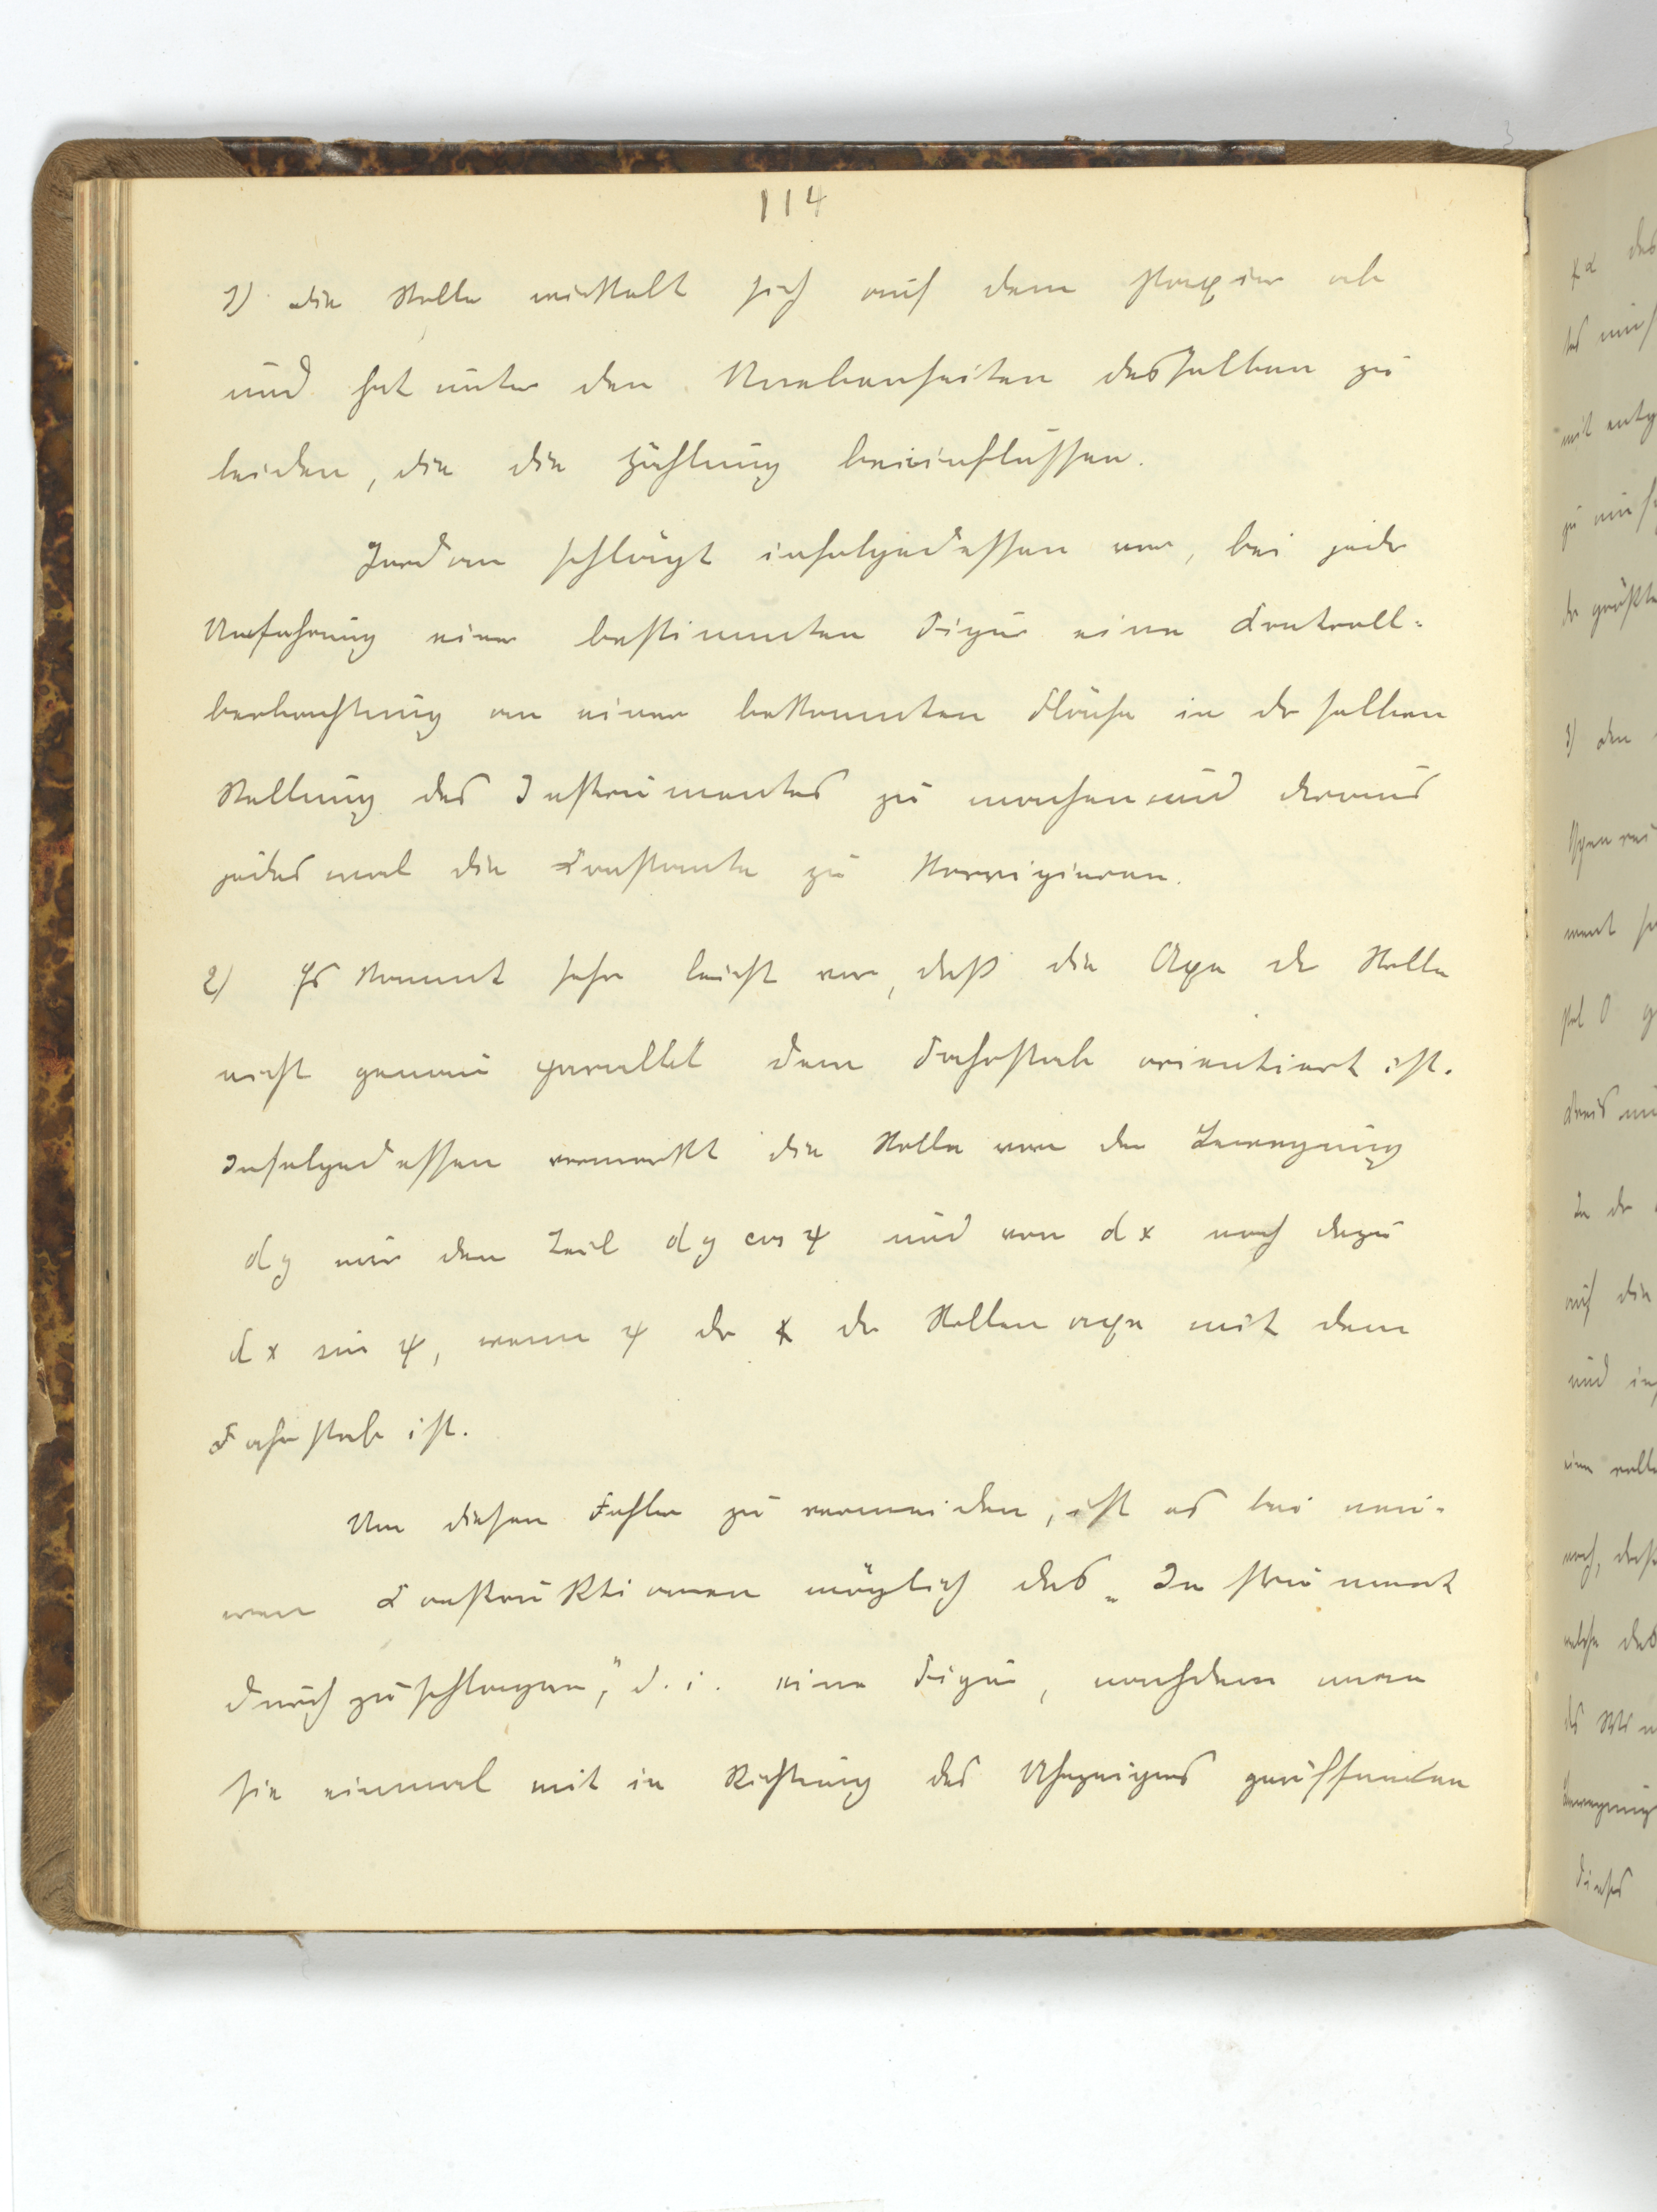 114
1) die Rolle wickelt sich auf dem Papier ab
und hat unter den Unebenheiten desselben zu
leiden, die die Zählung beeinflussen.
Jordan schlägt infolgedessen vor, bei jeder
Umfahrung einer bestimmten Figur eine Controll=
beobachtung an einer bekannten Fläche in derselben
Stellung des Instrumentes zu machen und daraus
jedes mal die Constante zu korrigieren.
2) Es kommt sehr leicht vor, daß die Axe der Rolle
nicht genau parallel dem Fahrstab orientiert ist.
Infolgedessen vermerkt die Rolle von der Bewegung
dy nur den Teil dy cos ψ und von dx noch dazu
dx sin ψ, wenn ψ der ∢ der Rollenaxe mit dem
Fahrstab ist.
Um diesen Fehler zu vermeiden, ist es bei neu=
eren Construktionen möglich das „Instrument
durchzuschlagen,“ d. i. eine Figur, nachdem man
sie einmal mit in Richtung des Uhrzeigers